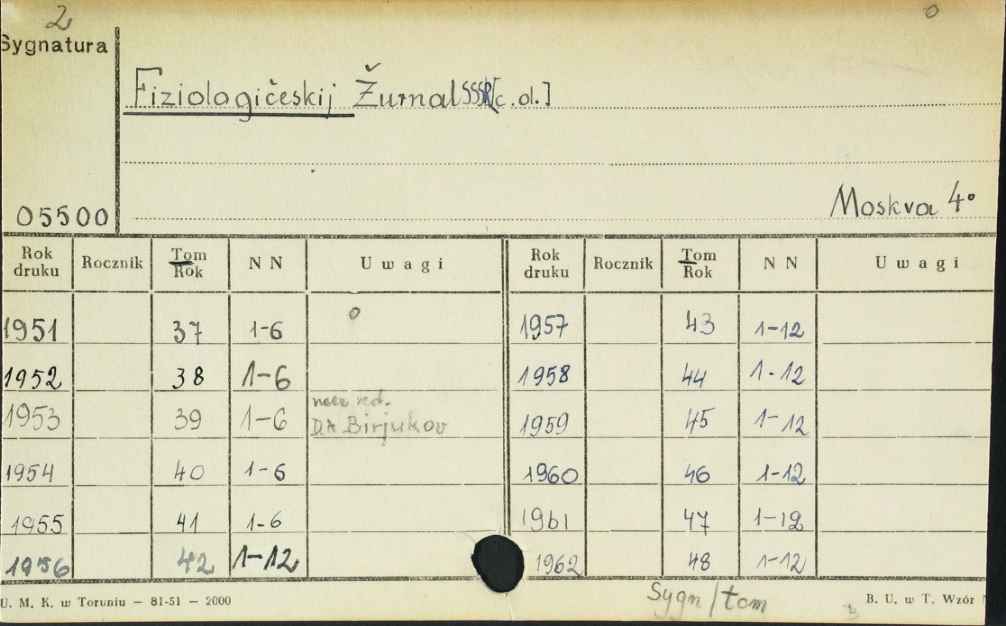 2
Sygnatura
Fiziologičeskij Žurnal SSSR [c. d.]
Moskva 4°
05500
Rok druku Rocznik Tom Rok N N Uwagi Rok druku Rocznik Tom Rok N N Uwagi
1951 37 1-6 1957 43 1-12
1952 38 1-6 1958 44 1-12
red.
1953 39 1-6 D.A. Birjukov 1959 45 1-12
1954 40 1-6 1960 46 1-12
1955 41 1-6 1961 47 1-12
1956 42 1-12 1962 48 1-12
Sygn/tom
U. M. K. w Toruniu — 81-51 — 2000 B. U. w T. Wzór